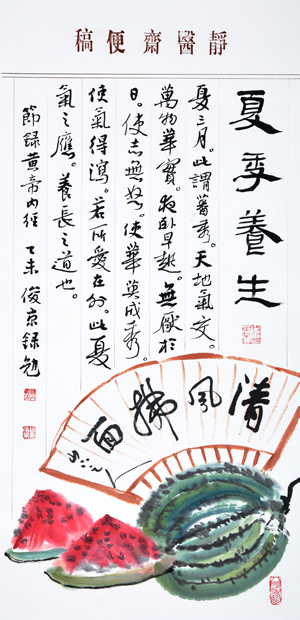 靜醫齋便稿
夏季養生
夏三月。此謂蕃秀。天地氣交。
萬物華實。夜卧早起。無厭於
日。使志無怒。使華英成秀。
使氣得瀉。若所愛在外。此夏
氣之應。養長之道也。
節録黃帝内經 乙未 俊京録
清風拂面